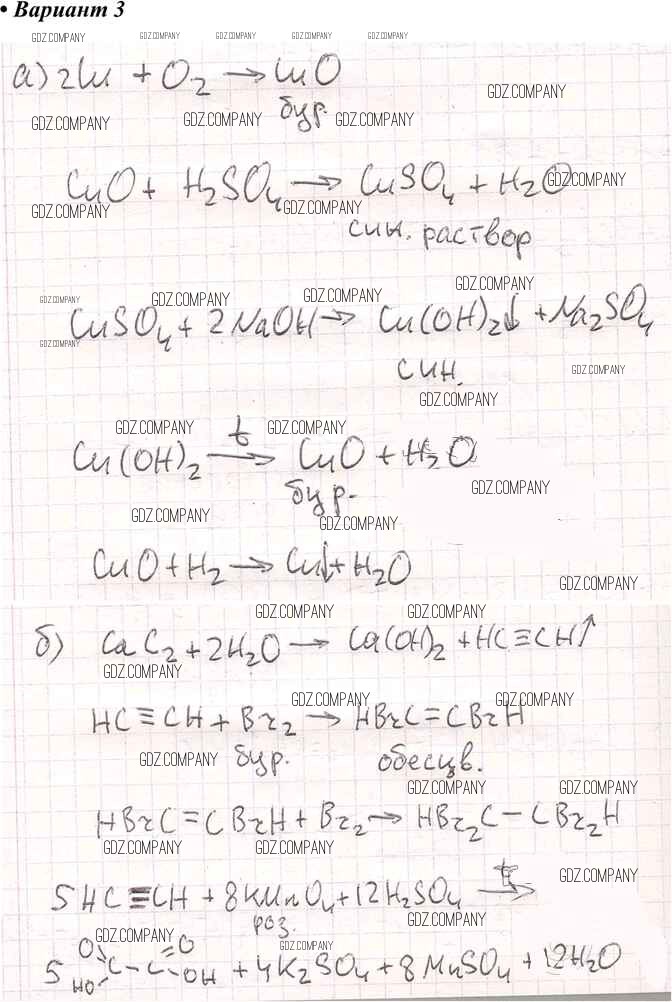 • Вариант 3
GDZ.COMPANY GDZ.COMPANY GDZ.COMPANY GDZ.COMPANY GDZ.COMPANY
а) 2Cu + O₂ → CuO
GDZ.COMPANY
GDZ.COMPANY GDZ.COMPANY бур. GDZ.COMPANY
CuO + H₂SO₄ → CuSO₄ + H₂O GDZ.COMPANY
GDZ.COMPANY GDZ.COMPANY
син. раствор
GDZ.COMPANY GDZ.COMPANY GDZ.COMPANY GDZ.COMPANY
CuSO₄ + 2NaOH → Cu(OH)₂↓ + Na₂SO₄
GDZ.COMPANY
син. GDZ.COMPANY
GDZ.COMPANY
GDZ.COMPANY t GDZ.COMPANY
Cu(OH)₂ → CuO + H₂O
бур. GDZ.COMPANY
GDZ.COMPANY GDZ.COMPANY
CuO + H₂ → Cu↓ + H₂O
GDZ.COMPANY
GDZ.COMPANY GDZ.COMPANY
б) CaC₂ + 2H₂O → Ca(OH)₂ + HC≡CH↑
GDZ.COMPANY
GDZ.COMPANY GDZ.COMPANY
HC≡CH + Br₂ → HBrC=CBrH
GDZ.COMPANY бур. обесцв.
GDZ.COMPANY GDZ.COMPANY
HBrC=CBrH + Br₂ → HBr₂C–CBr₂H
GDZ.COMPANY GDZ.COMPANY
t GDZ.COMPANY
5HC≡CH + 8KMnO₄ + 12H₂SO₄ →
роз. GDZ.COMPANY
GDZ.COMPANY GDZ.COMPANY
O O
5 C–C + 4K₂SO₄ + 8MnSO₄ + 12H₂O
HO OH